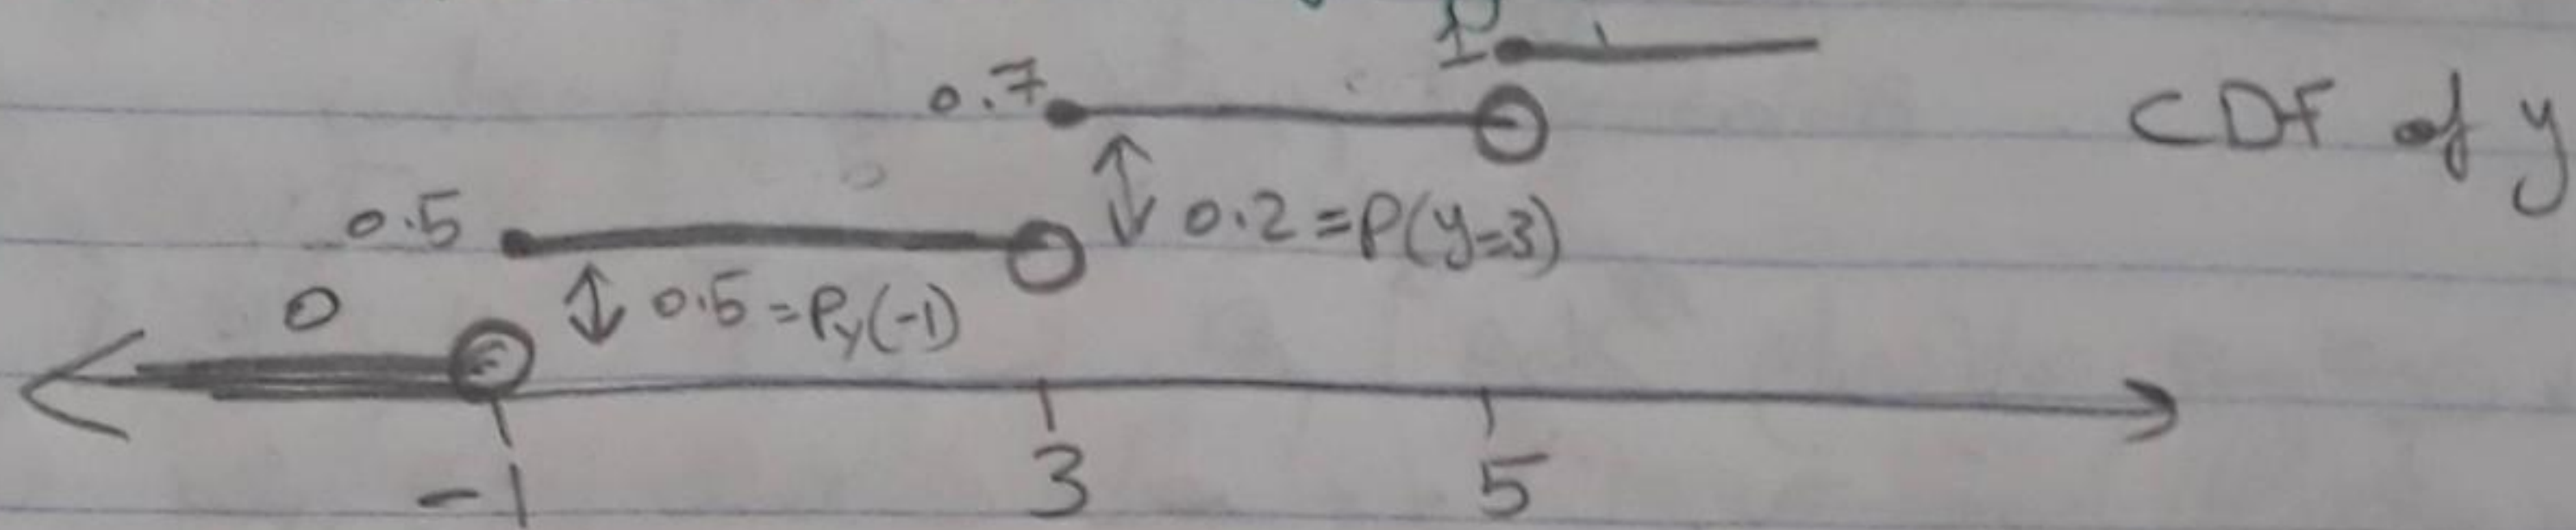 1
0.7
CDF of y
0.5
0.2 = P(y=3)
0
0.5 = Py(-1)
-1 3 5